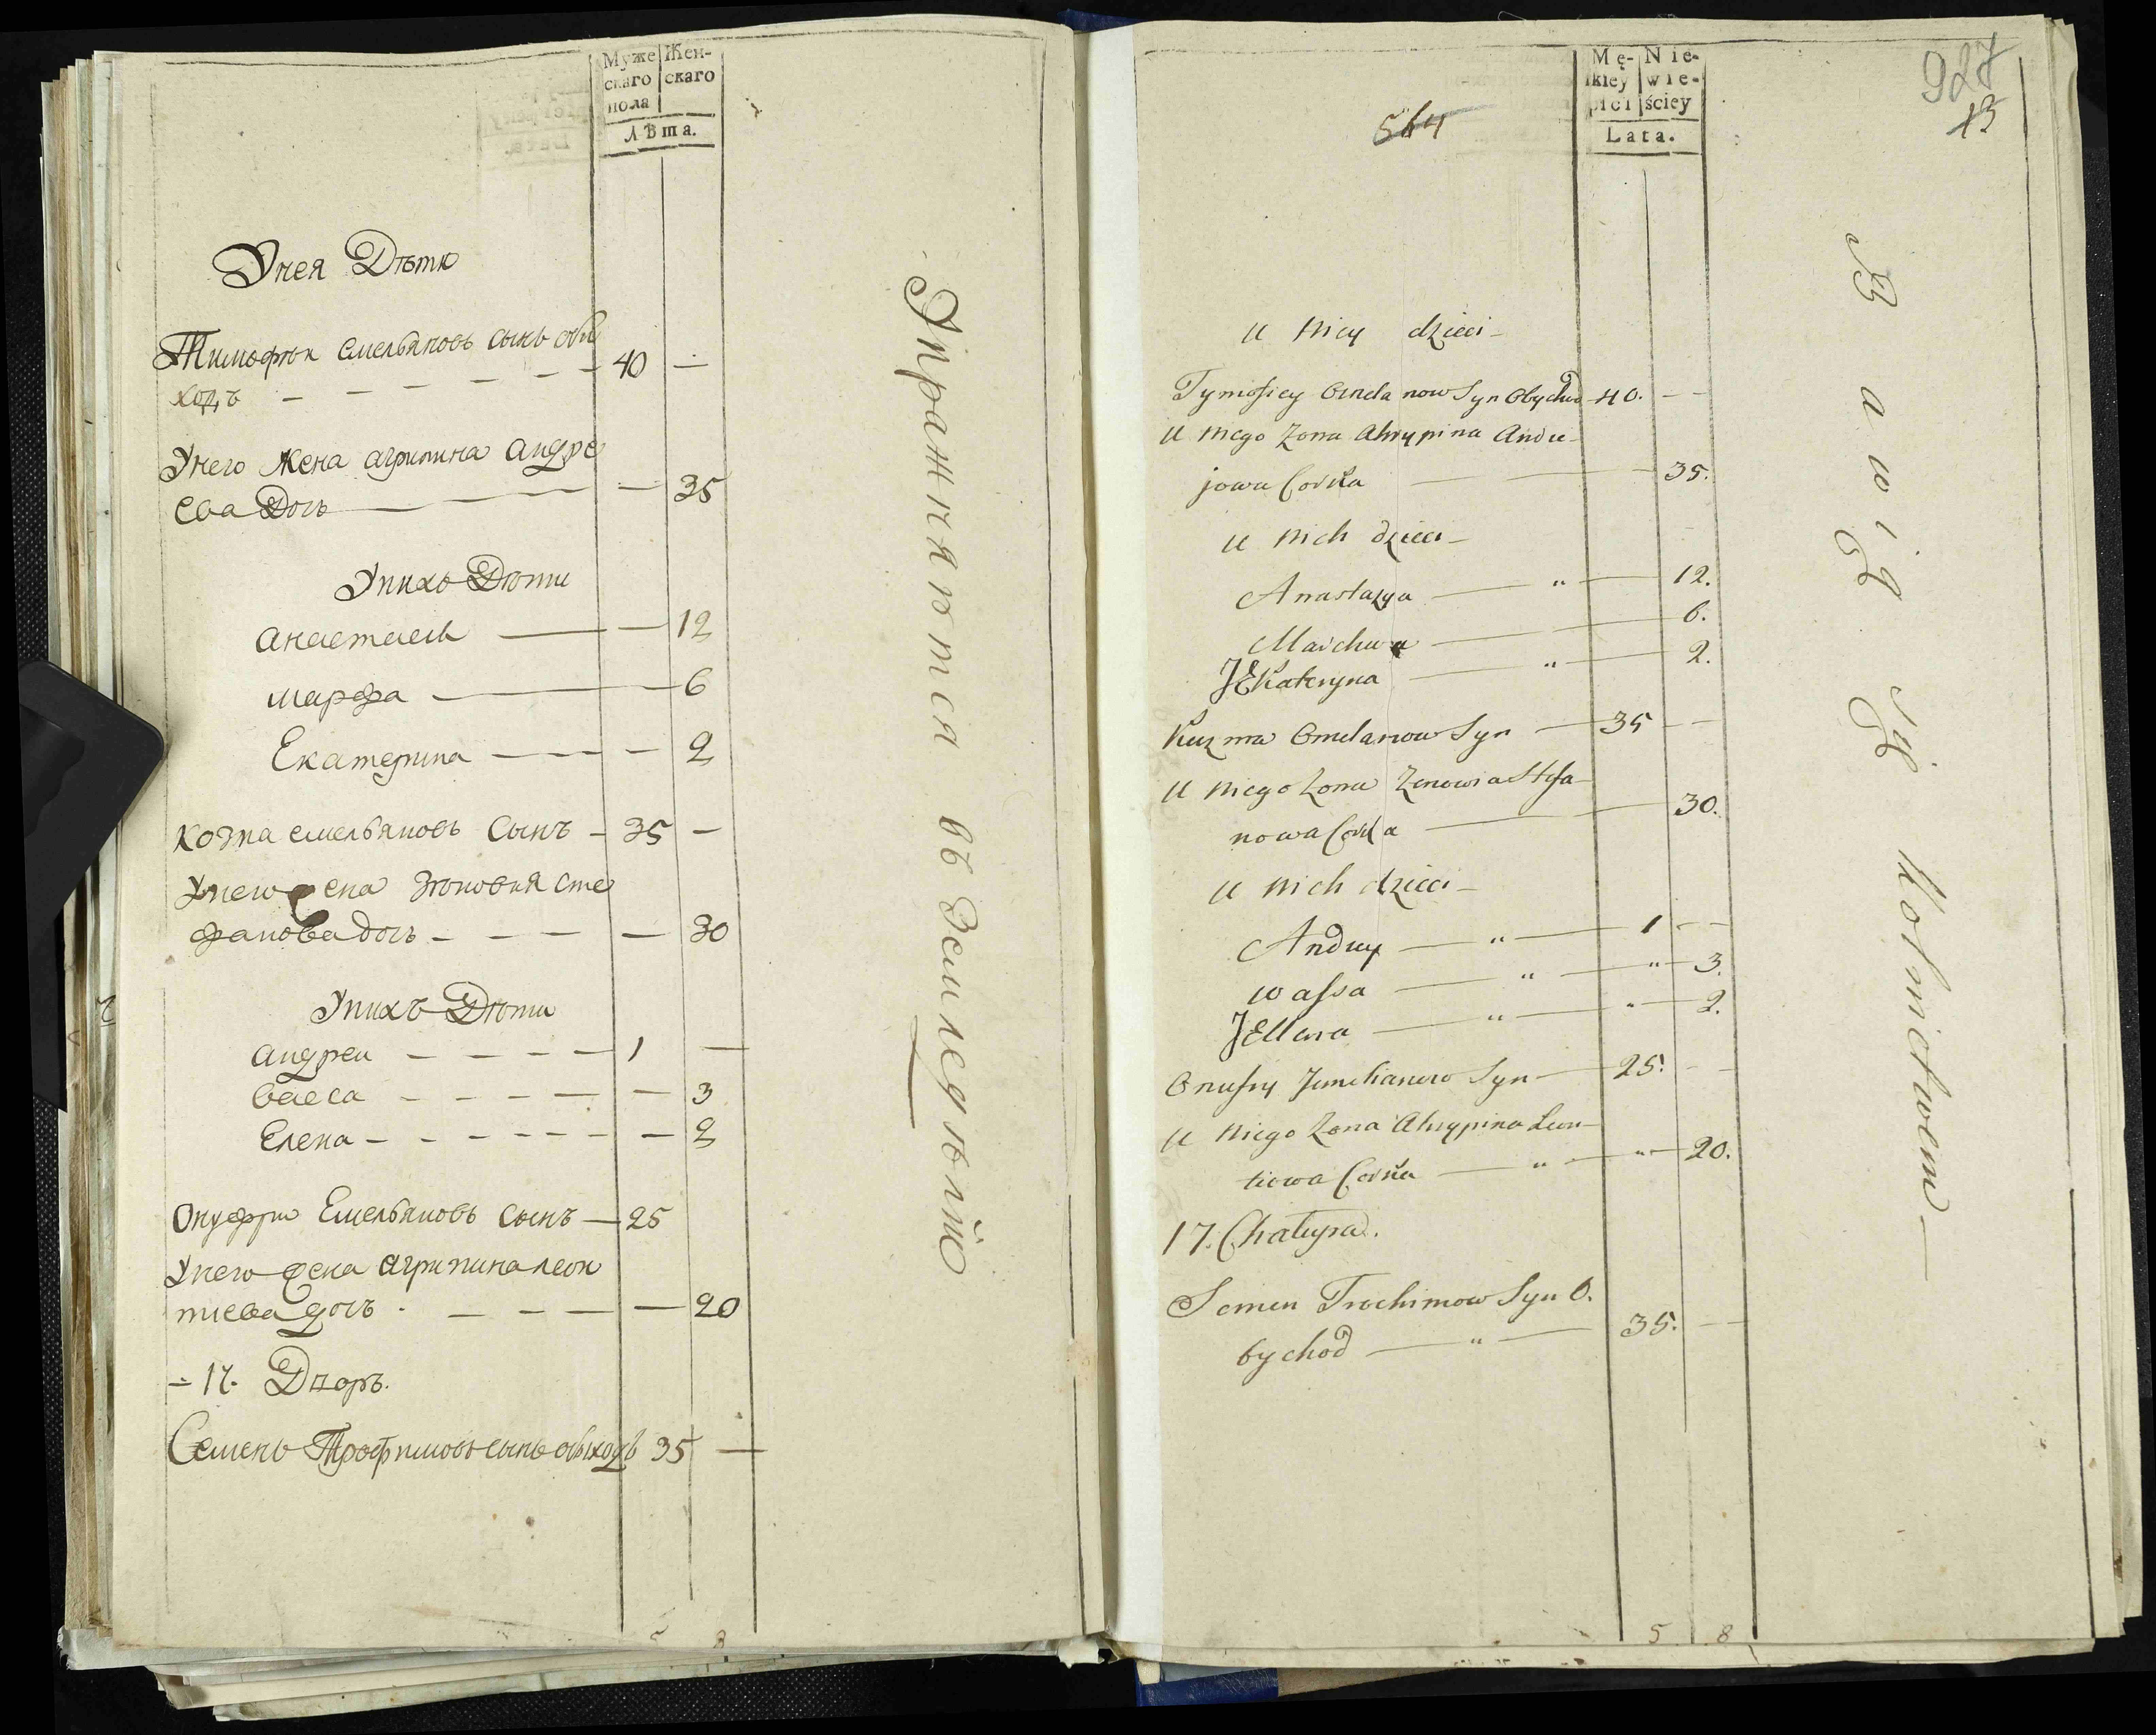 Муже Жен-
скаго скаго
пола
Лѣта.
Унея Дѣти
Тимофѣи емельяновъ сынъ обы
ходъ — — — — — — 40 —
Унего жена агрипина андре
ева Дочь — — — 35
Унихъ Дѣти
анастасия — — 12
марфа — — 6
Екатерина — — — 2
козма емельяновъ сынъ — 35 —
Унего жена зѣновия сте
фанова дочь — — — — 30
Унихъ Дѣти
андреи — — — — 1 —
васса — — — — — 3
Елена — — — — — — 2
Онуфри Емельяновъ сынъ — 25
Унего жена агрипина леон
тиева дочь — — — — 20
17. Дворъ.
Семенъ Трофимовъ сынъ обыходъ 35 —
Упражняются въ Земледѣлїи
Mę- Nie-
skiey wie-
płci ściey
Lata.
564
927
13
u Niey dzieci
Tymofiey Omelanow Syn Obychod 40. —
u niego Zona Ahrypina Andre-
jowa Corka — 35.
u Nich dzieci
Anastazya — " — 12.
Marchwa — 6.
JEkateryna — " — 2.
Kuzma Omelanow Syn — 35 —
u Niego Zona Zenowia Stefa-
nowa Corka — 30.
u Nich dzieci
Andrey — " — 1 —
wassa — " — " — 3.
JEllena — " — " — 2.
Onufry Jemelianow Syn — 25. —
u Niego Zona Ahrypina Leon-
tiowa Corka — " — " — 20.
17. Chałupa.
Semen Trochimow Syn O.
bychod — " — 35. —
5 8
Bawią Się Rolnictwem